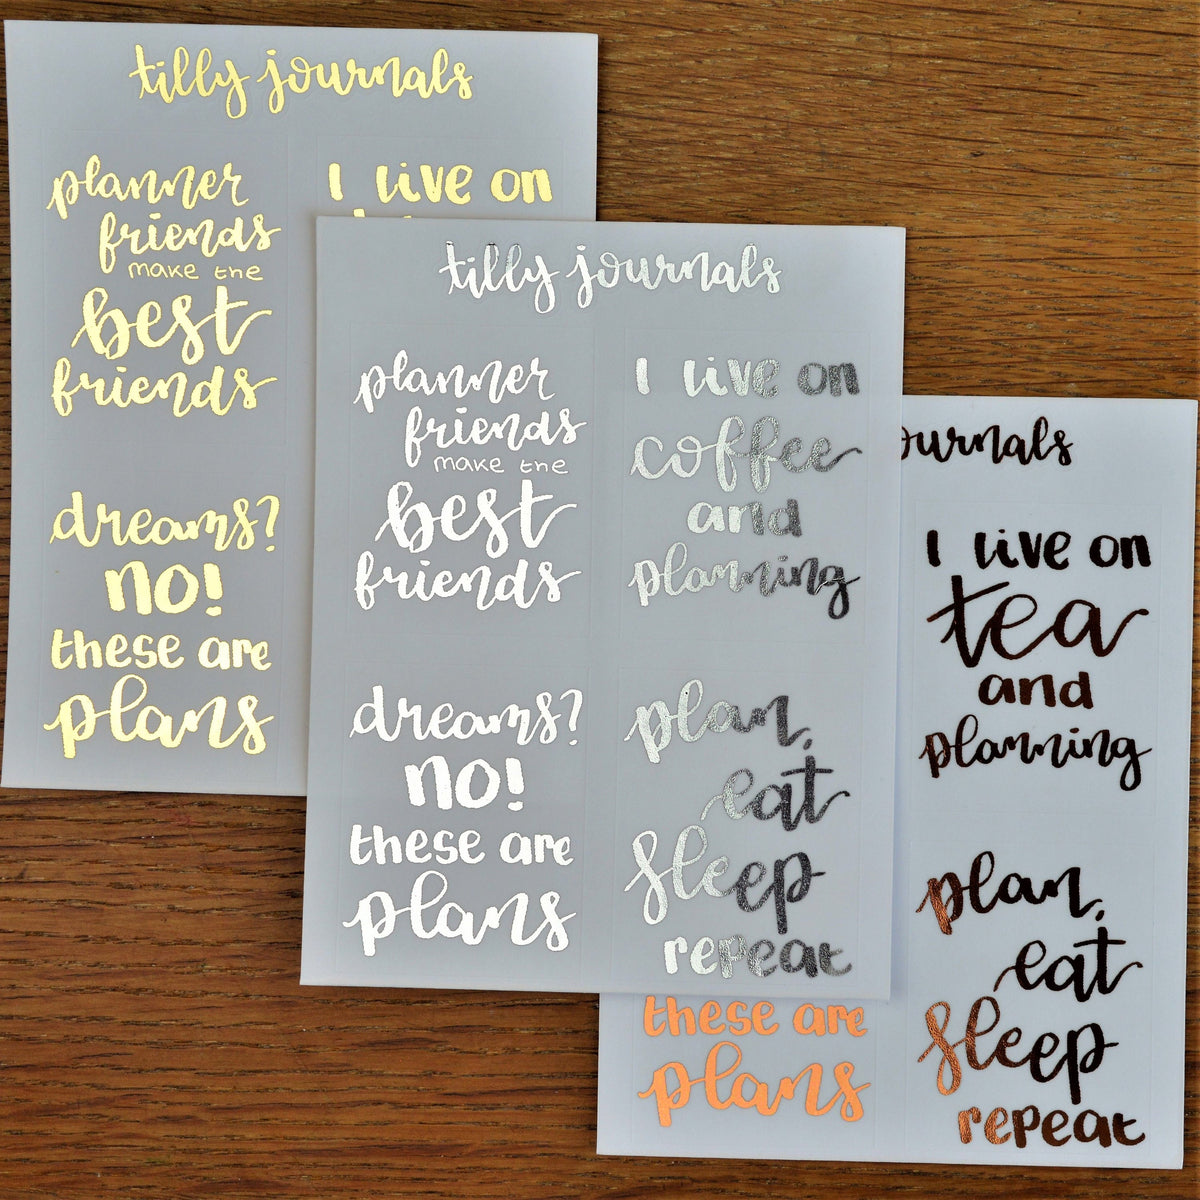 tilly journals
planner
friends
make the
best
friends
I live on
dreams?
no!
these are
plans
tilly journals
planner
friends
make the
best
friends
I live on
coffee
and
planning
dreams?
no!
these are
plans
plan,
eat
sleep
repeat
ournals
I live on
tea
and
planning
these are
plans
plan,
eat
sleep
repeat